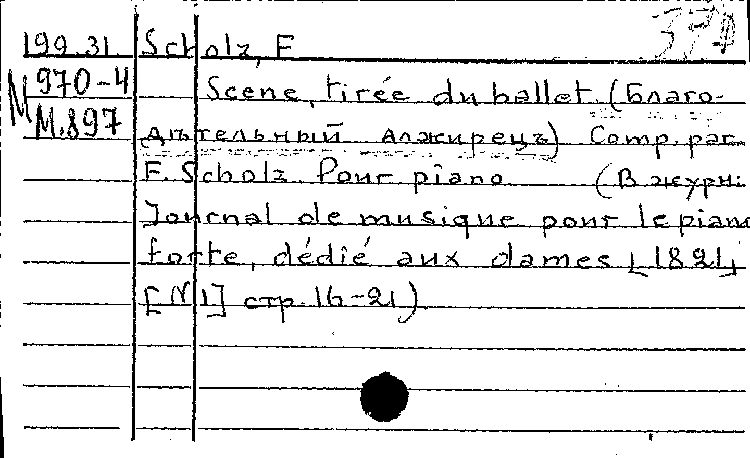 199.31. Scholz, F
M 970-4 Scene, tirée du ballet (Благо-
М.897 дѣтельный алжирецъ) Comp. par
F. Scholz. Pour piano (В журн:
Journal de musique pour le piano
forte, dédié aux dames [1821]
[N 1] стр. 16-21)